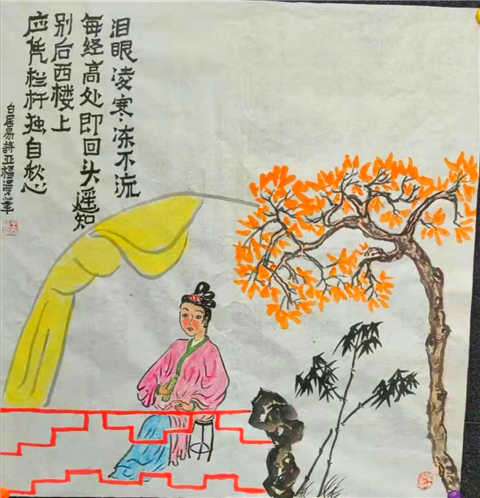 泪眼凌寒冻不流
每经高处即回头遥知
别后西楼上
应凭栏杆独自愁
白居易诗亚